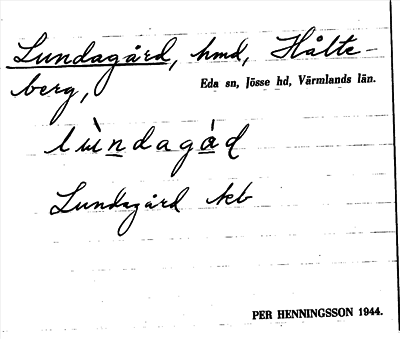 Lundagård, hmd, Hålte-
berg,
Eda sn, Jösse hd, Värmlands län.
Lundagård kb
PER HENNINGSSON 1944.